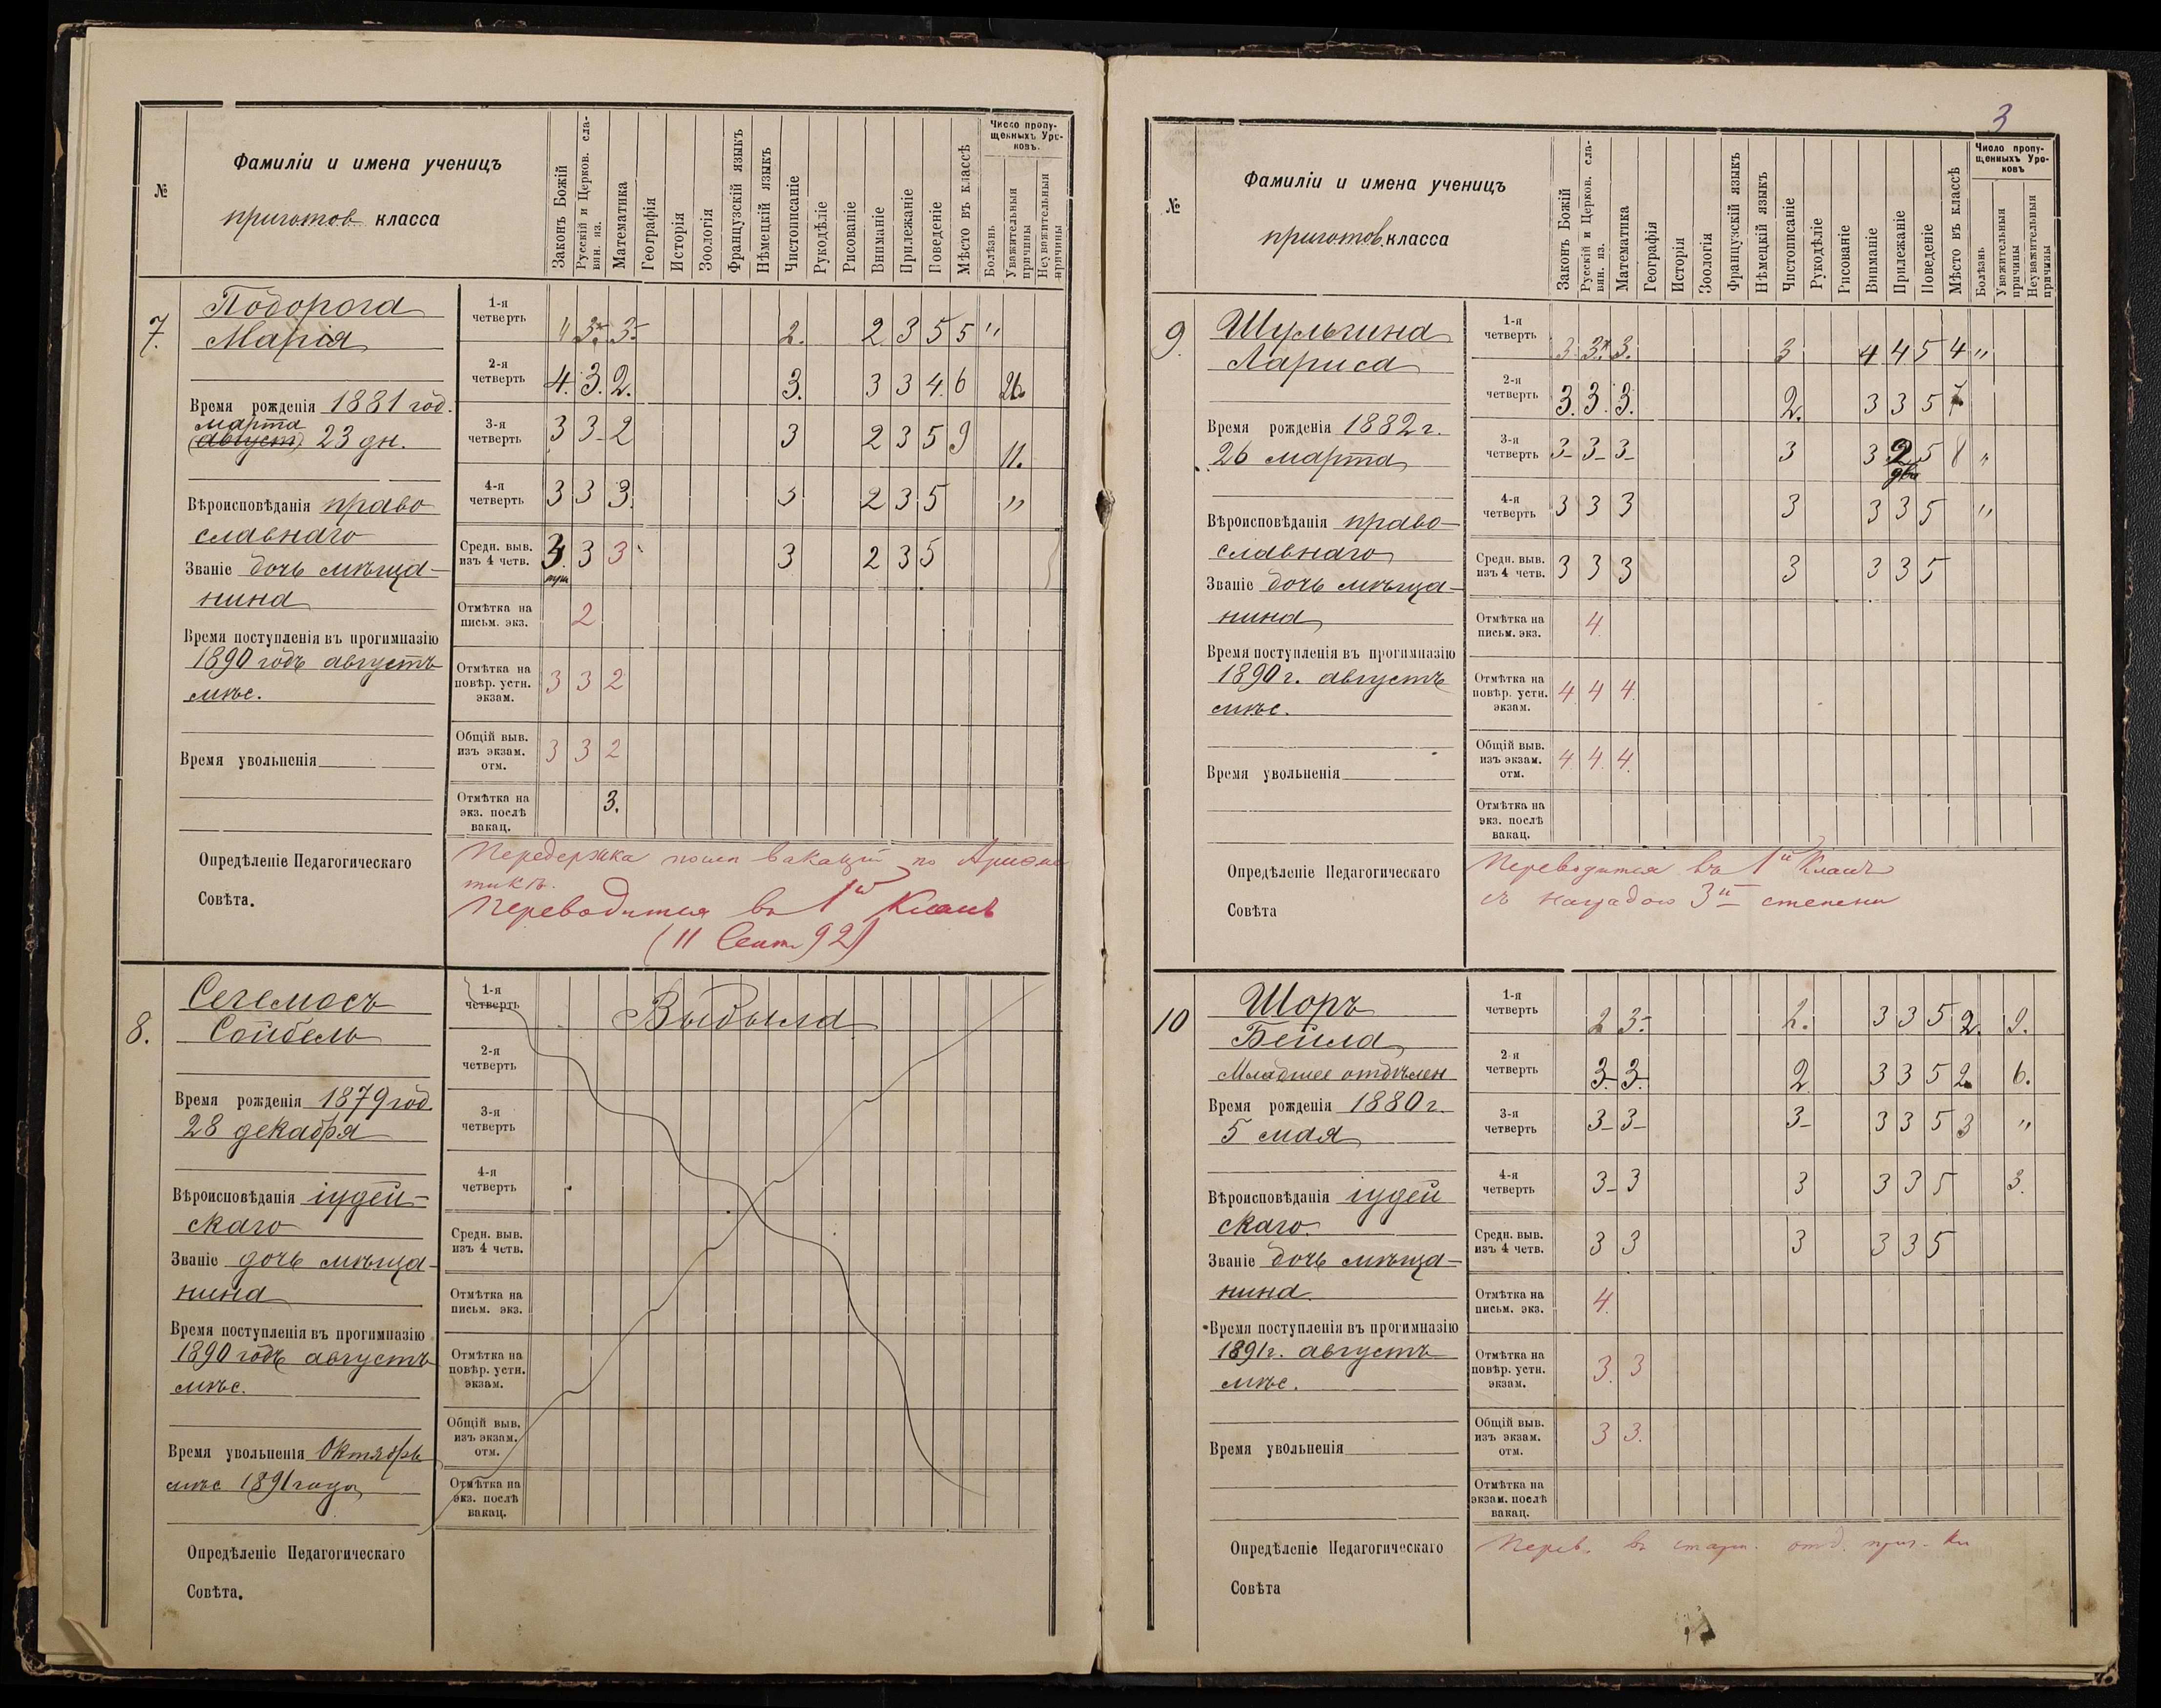 №
Фамиліи и имена ученицъ
приготов класса
Законъ Божій
Русскій и Церков. сла-
вян. яз.
Математика
Географія
Исторія
Зоологія
Французскій языкъ
Нѣмецкій языкъ
Чистописаніе
Рукодѣліе
Рисованіе
Вниманіе
Прилежаніе
Поведеніе
Мѣсто въ классѣ
Число пропу-
щенныхъ Уро-
ковъ.
Болѣзнь
Уважительныя
причины
Неуважительныя
причины
7.
Подорога
Марія
Время рожденія 1881 год.
марта
(август) 23 дн.
Вѣроисповѣданія право
славнаго
Званіе дочь мѣща-
нина
Время поступленія въ прогимназію
1890 годъ августъ
мѣс.
Время увольненія
1-я
четверть 4 3- 3- 2. 2 3 5 5 "
2-я
четверть 4. 3. 2. 3. 3 3 4. 6 26
3-я
четверть 3 3- 2 3 2 3 5 9 11.
4-я
четверть 3 3 3. 3 2 3 5 "
Средн. выв.
изъ 4 четв. 3. 3 3 3 2 3 5
три
Отмѣтка на
письм. экз. 2
Отмѣтка на
повѣр. устн.
экзам. 3 3 2
Общій выв.
изъ экзам.
отм. 3 3 2
Отмѣтка на
экз. послѣ
вакац. 3.
Опредѣленіе Педагогическаго
Совѣта.
Передержка после вакацій по Ариѳме
тикѣ.
Переводится въ 1й Классъ
(11 Сент. 92)
8.
Сегемосъ
Сойбель
Время рожденія 1879 год.
28 декабря
Вѣроисповѣданія іудей-
скаго
Званіе дочь мѣща-
нина
Время поступленія въ прогимназію
1890 годъ августъ
мѣс.
Время увольненія Октябрь
мѣс 1891 года
1-я
четверть Выбыла
2-я
четверть
3-я
четверть
4-я
четверть
Средн. выв.
изъ 4 четв.
Отмѣтка на
письм. экз.
Отмѣтка на
повѣр. устн.
экзам.
Общій выв.
изъ экзам.
отм.
Отмѣтка на
экз. послѣ
вакац.
Опредѣленіе Педагогическаго
Совѣта.
3
№
Фамиліи и имена ученицъ
приготов. класса
Законъ Божій
Русскій и Церков. сла-
вян. яз.
Математика
Географія
Исторія
Зоологія
Французскій языкъ
Нѣмецкій языкъ
Чистописаніе
Рукодѣліе
Рисованіе
Вниманіе
Прилежаніе
Поведеніе
Мѣсто въ классѣ
Число пропу-
щенныхъ Уро-
ковъ
Болѣзнь
Уважительныя
причины
Неуважительныя
причины
9.
Шульгина
Лариса
Время рожденія 1882 г.
26 марта
Вѣроисповѣданія право-
славнаго
Званіе дочь мѣща-
нина
Время поступленія въ прогимназію
1890 г. августъ
мѣс.
Время увольненія
1-я
четверть 3 3. 3. 3 4 4 5 4 "
2-я
четверть 3. 3. 3. 2. 3 3 5 7
3-я
четверть 3- 3- 3- 3 3 2 5 8 "
два
4-я
четверть 3 3 3 3 3 3 5 "
Средн. выв.
изъ 4 четв. 3 3 3 3 3 3 5
Отмѣтка на
письм. экз. 4.
Отмѣтка на
повѣр. устн.
экзам. 4. 4 4.
Общій выв.
изъ экзам.
отм. 4. 4. 4.
Отмѣтка на
экз. послѣ
вакац.
Опредѣленіе Педагогическаго
Совѣта
Переводится въ 1й Классъ
съ наградою 3й степени
10
Шоръ
Бейла
Младшее отдѣлен
Время рожденія 1880 г.
5 мая
Вѣроисповѣданія іудей
скаго.
Званіе дочь мѣща-
нина.
Время поступленія въ прогимназію
1891 г. августъ
мѣс.
Время увольненія
1-я
четверть 2 3- 2. 3 3 5 2. 2.
2 я
четверть 3- 3- 2 3 3 5 2. 6.
3-я
четверть 3- 3- 3- 3 3 5 3 "
4-я
четверть 3- 3 3 3 3 5 3.
Средн. выв.
изъ 4 четв. 3 3 3 3 3 5
Отмѣтка на
письм. экз. 4.
Отмѣтка на
повѣр. устн.
экзам. 3. 3
Общій выв.
изъ экзам.
отм. 3 3.
Отмѣтка на
экзам. послѣ
вакац.
Опредѣленіе Педагогическаго
Совѣта
Перев. въ старш. отд. приг. кл